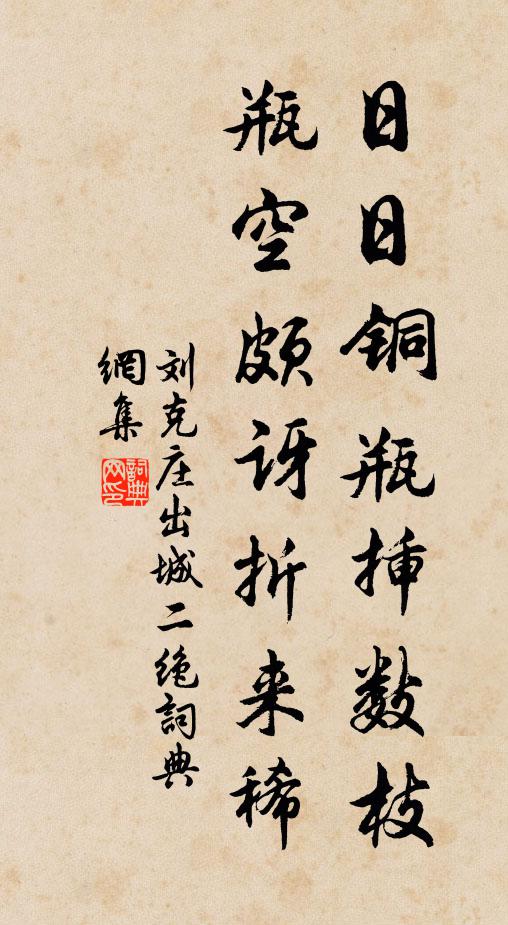 日日铜瓶挿数枝
瓶空颇讶折来稀
刘克庄出城二绝詞典
網集
詞典网印